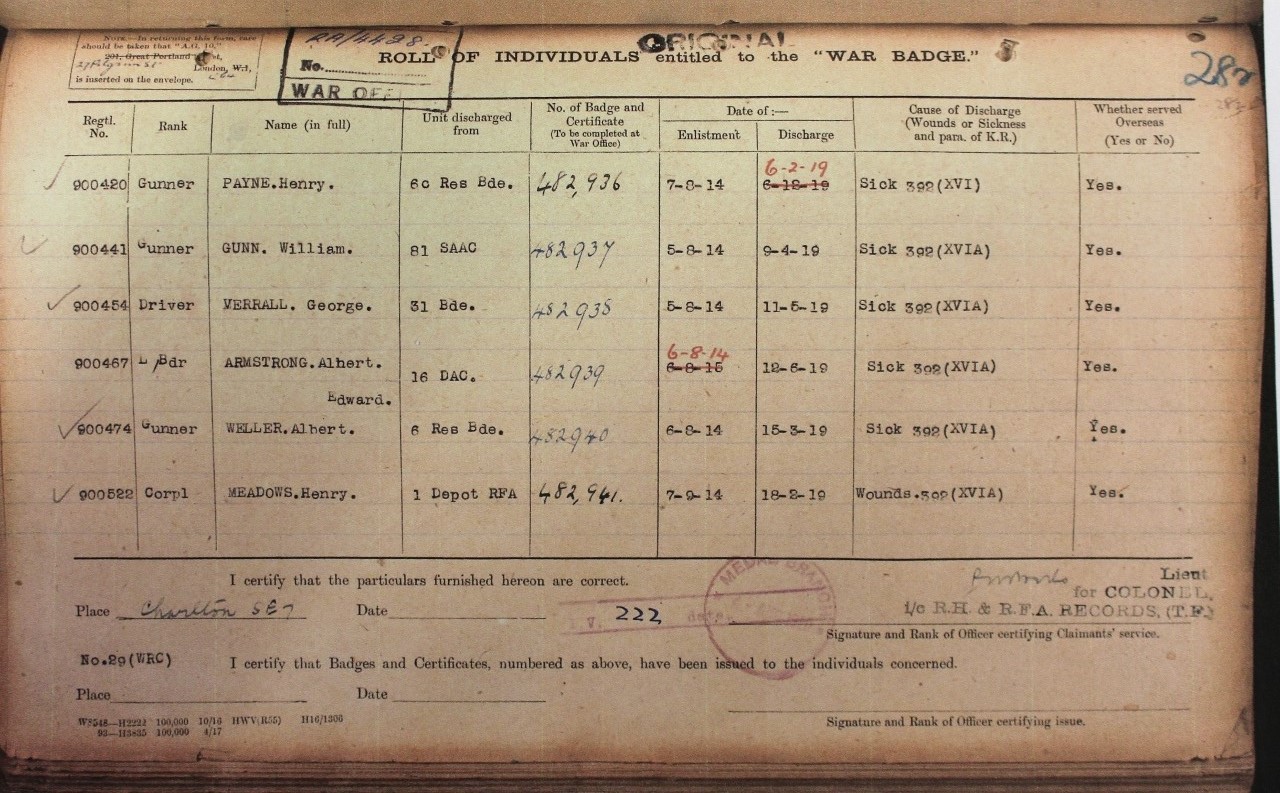 NOTE.—In returning this form, care
should be taken that "A.G. 10,"
201, Great Portland Street,
London, W.1,
is inserted on the envelope.
RA/4428.
No.
WAR OFF
ORIGINAL
ROLL OF INDIVIDUALS entitled to the "WAR BADGE."
282
Regtl. No. Rank Name (in full) Unit discharged from No. of Badge and Certificate (To be completed at War Office) Date of:— Enlistment Discharge Cause of Discharge (Wounds or Sickness and para. of K.R.) Whether served Overseas (Yes or No)
6-2-19
900420 Gunner PAYNE.Henry. 6c Res Bde. 482,936 7-8-14 6-12-19 Sick 392(XVI) Yes.
900441 Gunner GUNN. William. 81 SAAC 482937 5-8-14 9-4-19 Sick 392(XVIA) Yes.
900454 Driver VERRALL. George. 31 Bde. 482938 5-8-14 11-5-19 Sick 392(XVIA) Yes.
6-8-14
900467 L/Bdr ARMSTRONG.Albert. 16 DAC. 482939 6-8-15 12-6-19 Sick 392(XVIA) Yes.
Edward.
900474 Gunner WELLER.Albert. 6 Res Bde. 482940 6-8-14 15-3-19 Sick 392(XVIA) Yes.
900522 Corpl MEADOWS.Henry. 1 Depot RFA 482,941. 7-9-14 18-2-19 Wounds.392(XVIA) Yes.
I certify that the particulars furnished hereon are correct.
Lieut
for COLONEL,
i/c R.H. & R.F.A. RECORDS, (T.F.)
Place Charlton SE7 Date
V. 222
MEDAL BRANCH
Signature and Rank of Officer certifying Claimants' service.
No.29(WRC) I certify that Badges and Certificates, numbered as above, have been issued to the individuals concerned.
Place Date
Signature and Rank of Officer certifying issue.
W8548—H2222 100,000 10/16 HWV(R55) H16/1306
93—H3835 100,000 4/17